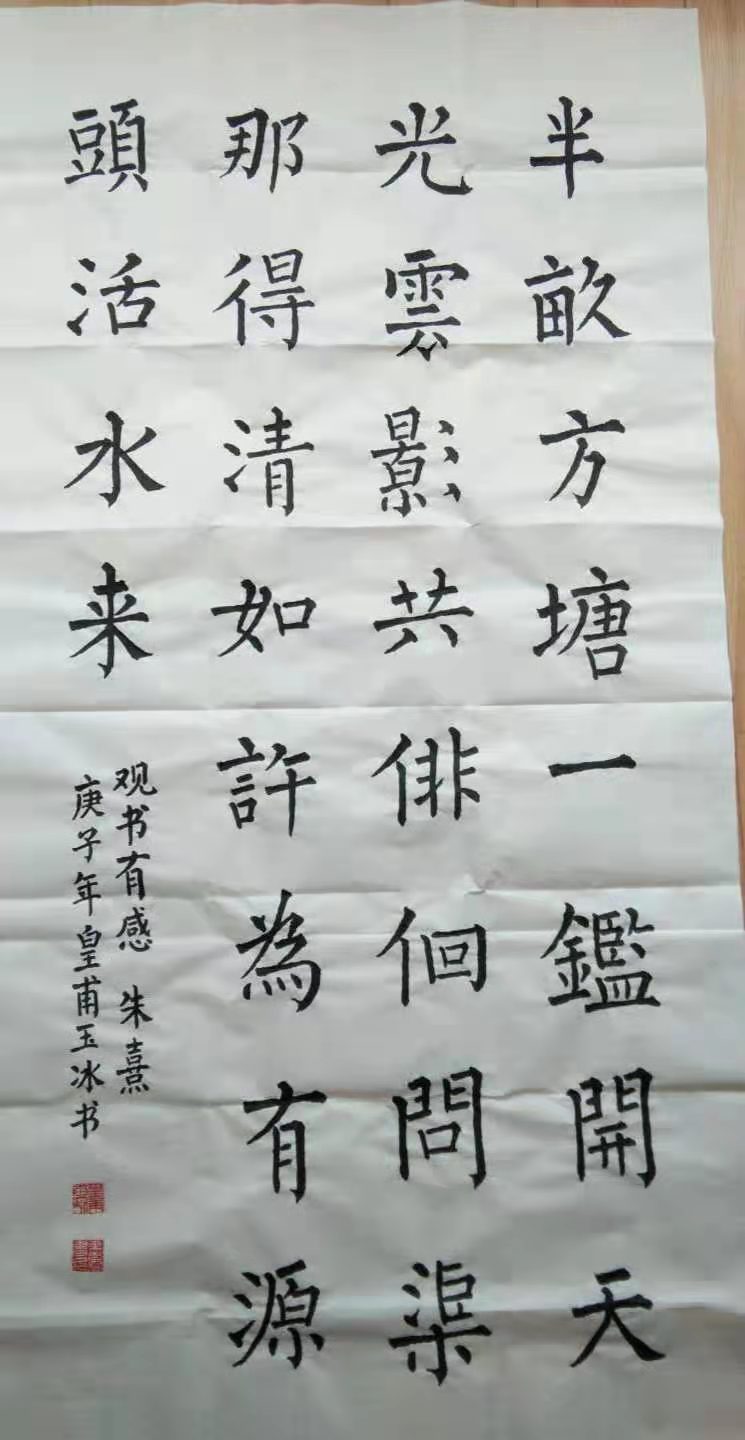 半畝方塘一鑑開天
光雲影共俳佪問渠
那得清如許為有源
頭活水来
观书有感 朱熹
庚子年皇甫玉冰书